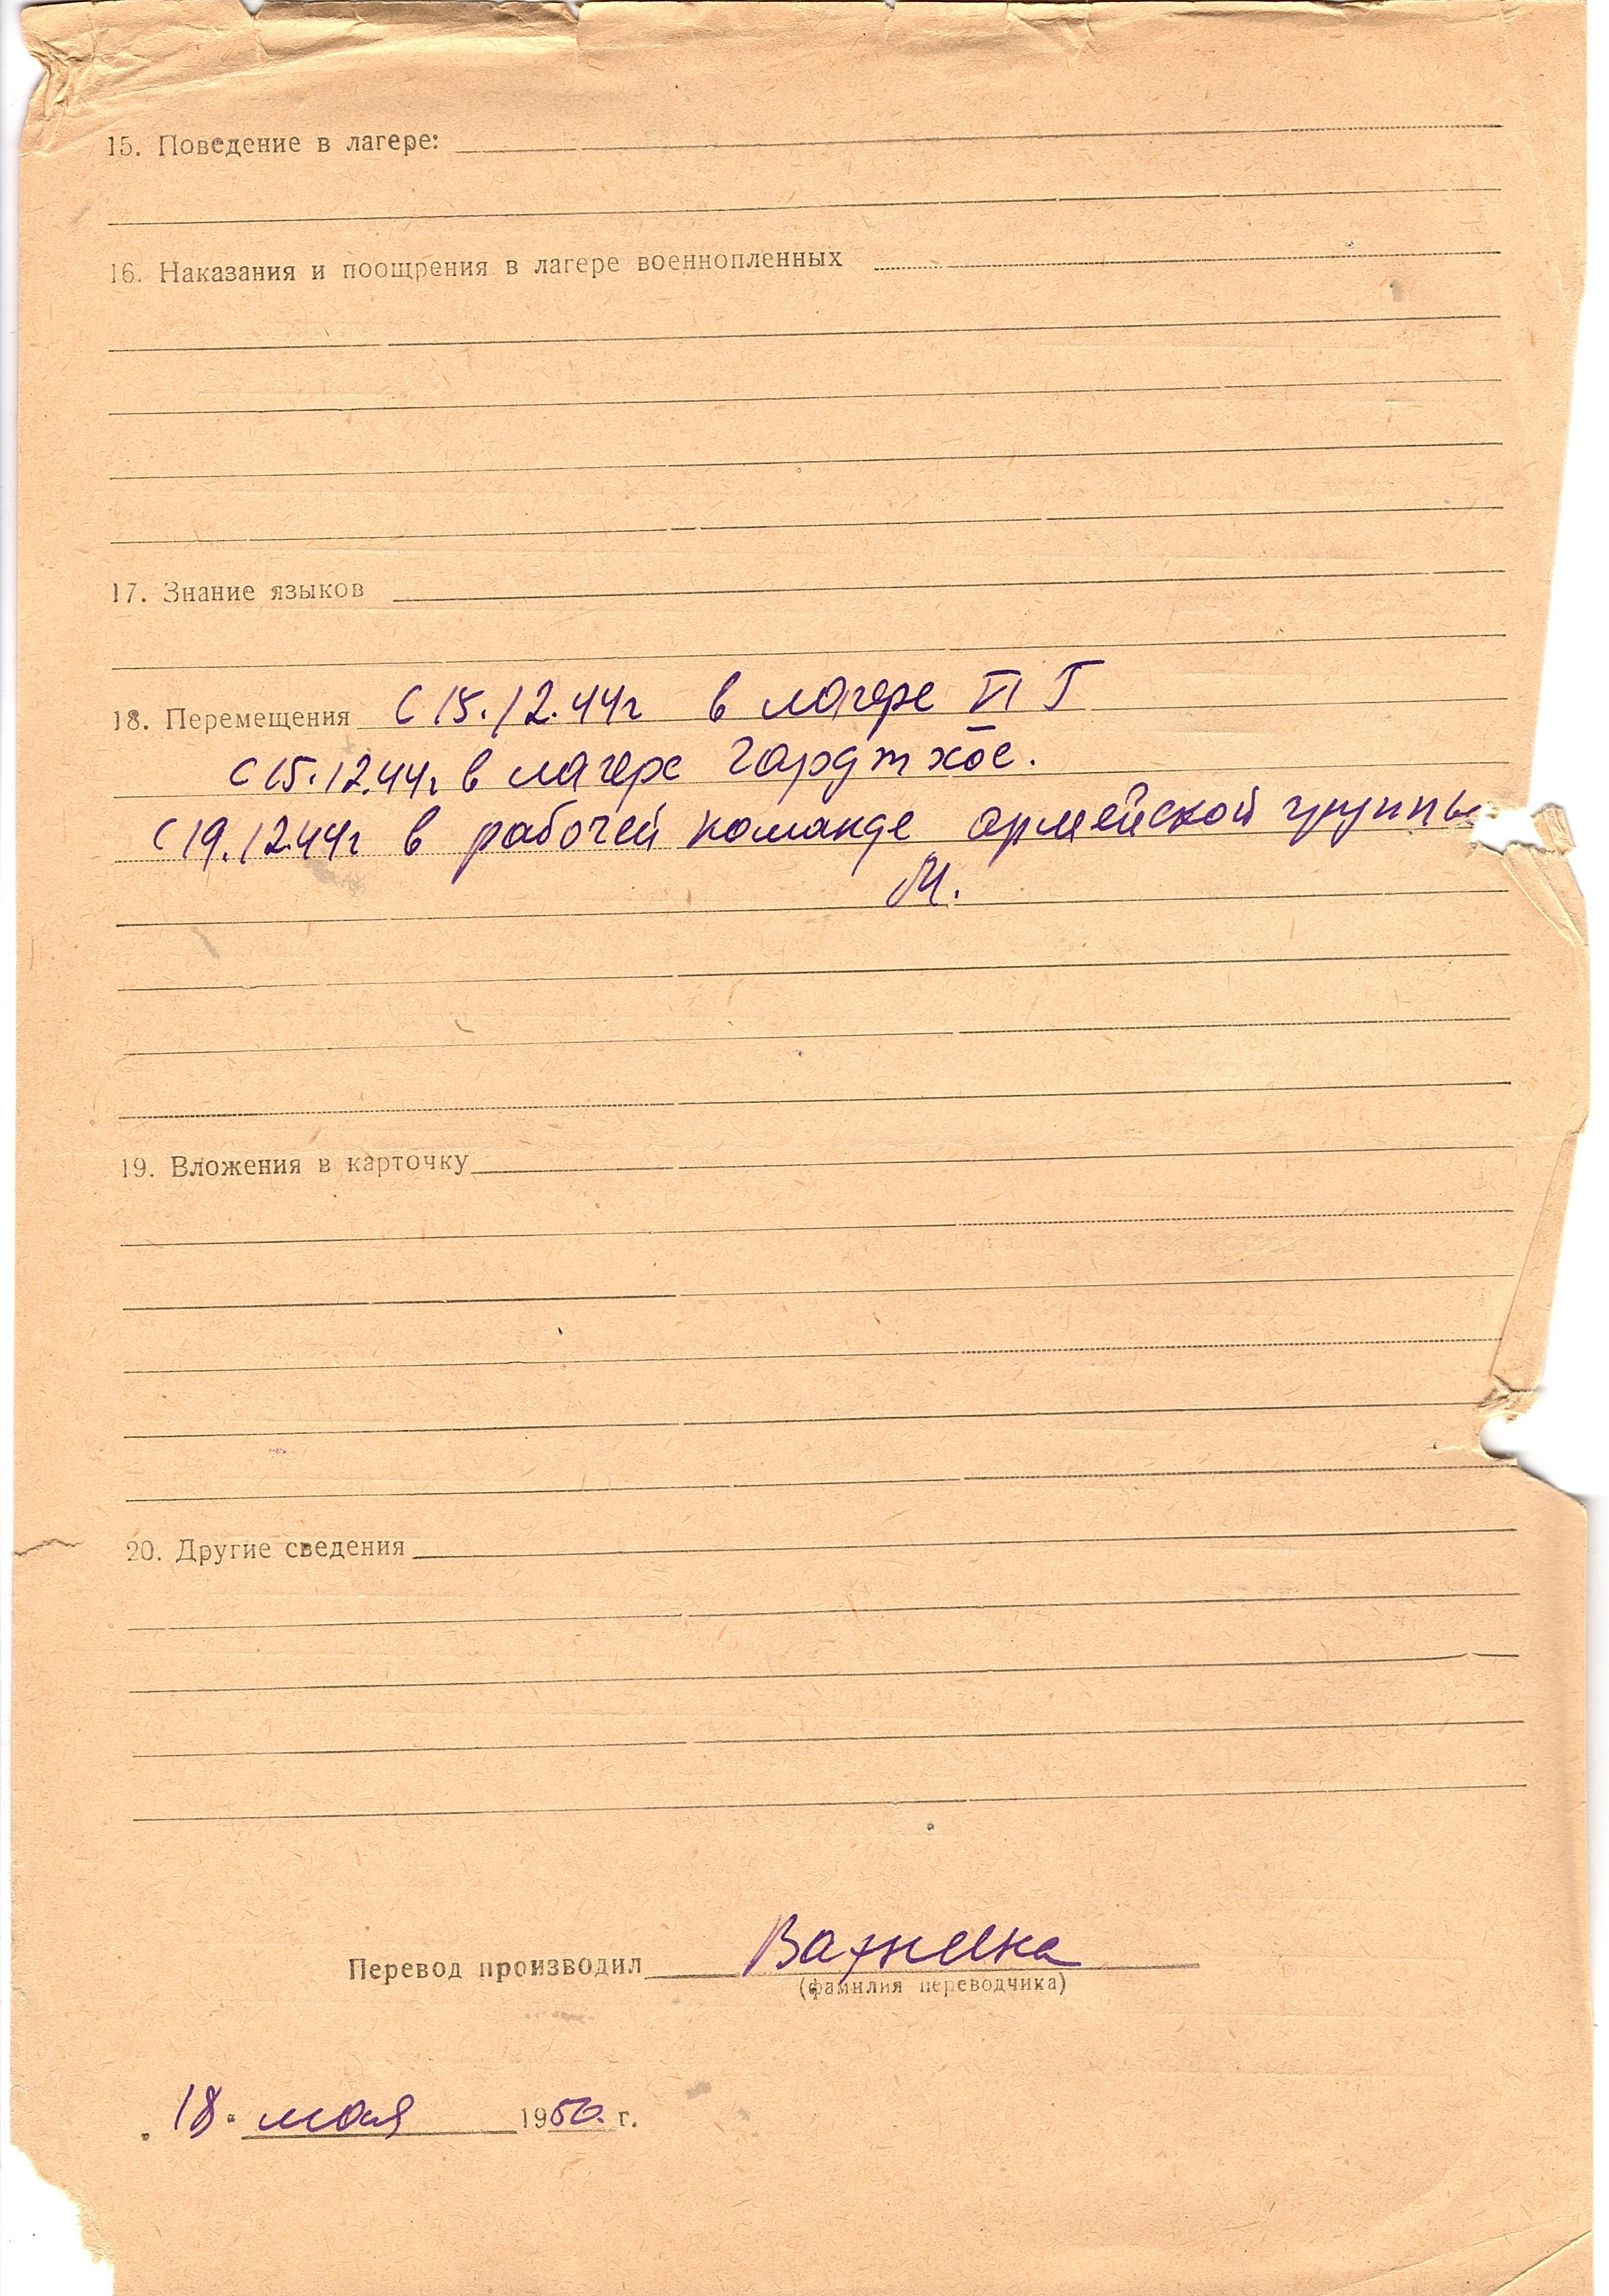 15. Поведение в лагере:
16. Наказания и поощрения в лагере военнопленных
17. Знание языков
18. Перемещения С 15.12.44г в лагере VI Г
С 15.12.44г в лагере Гардтхое.
С 19.12.44г в рабочей команде армейской группы
М.
19. Вложения в карточку
20. Другие сведения
Перевод производил
(фамилия переводчика)
18. мая 1950. г.